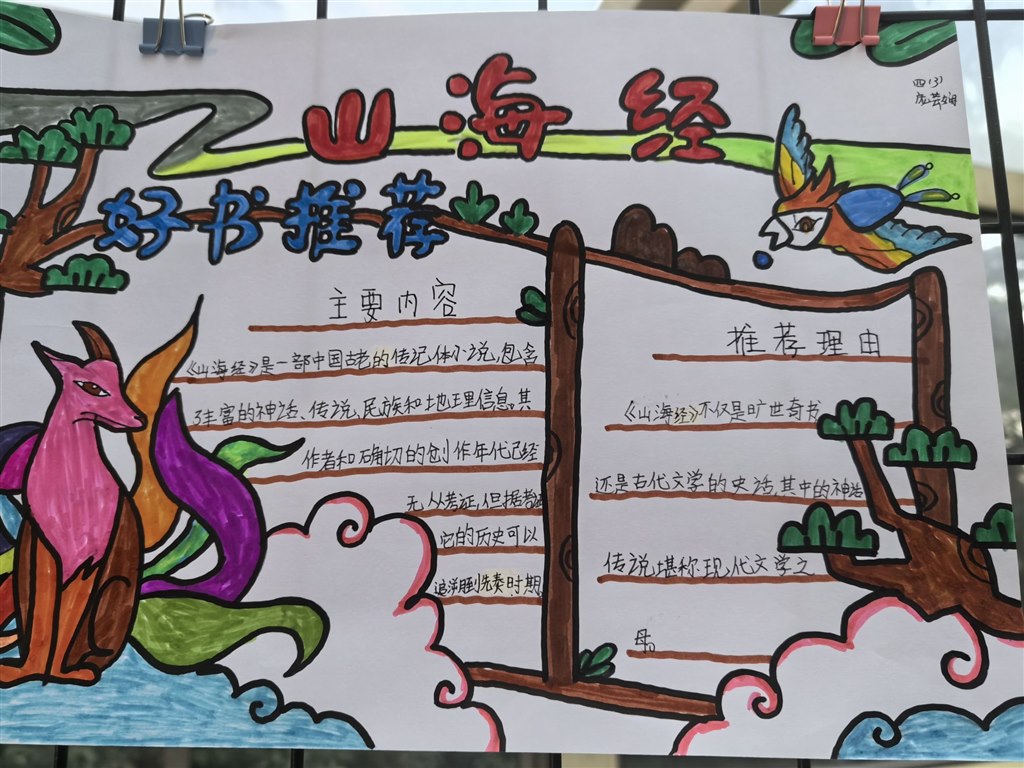 山海经
四(3)
好书推荐
主要内容
《山海经》是一部中国古老的传记体小说,包含
丰富的神话、传说、民族和地理信息。其
作者和确切的创作年代已经
无从考证,但据考证
它的历史可以
追溯到先秦时期。
推荐理由
《山海经》不仅是旷世奇书
还是古代文学的史话,其中的神话
传说堪称现代文学之
母。